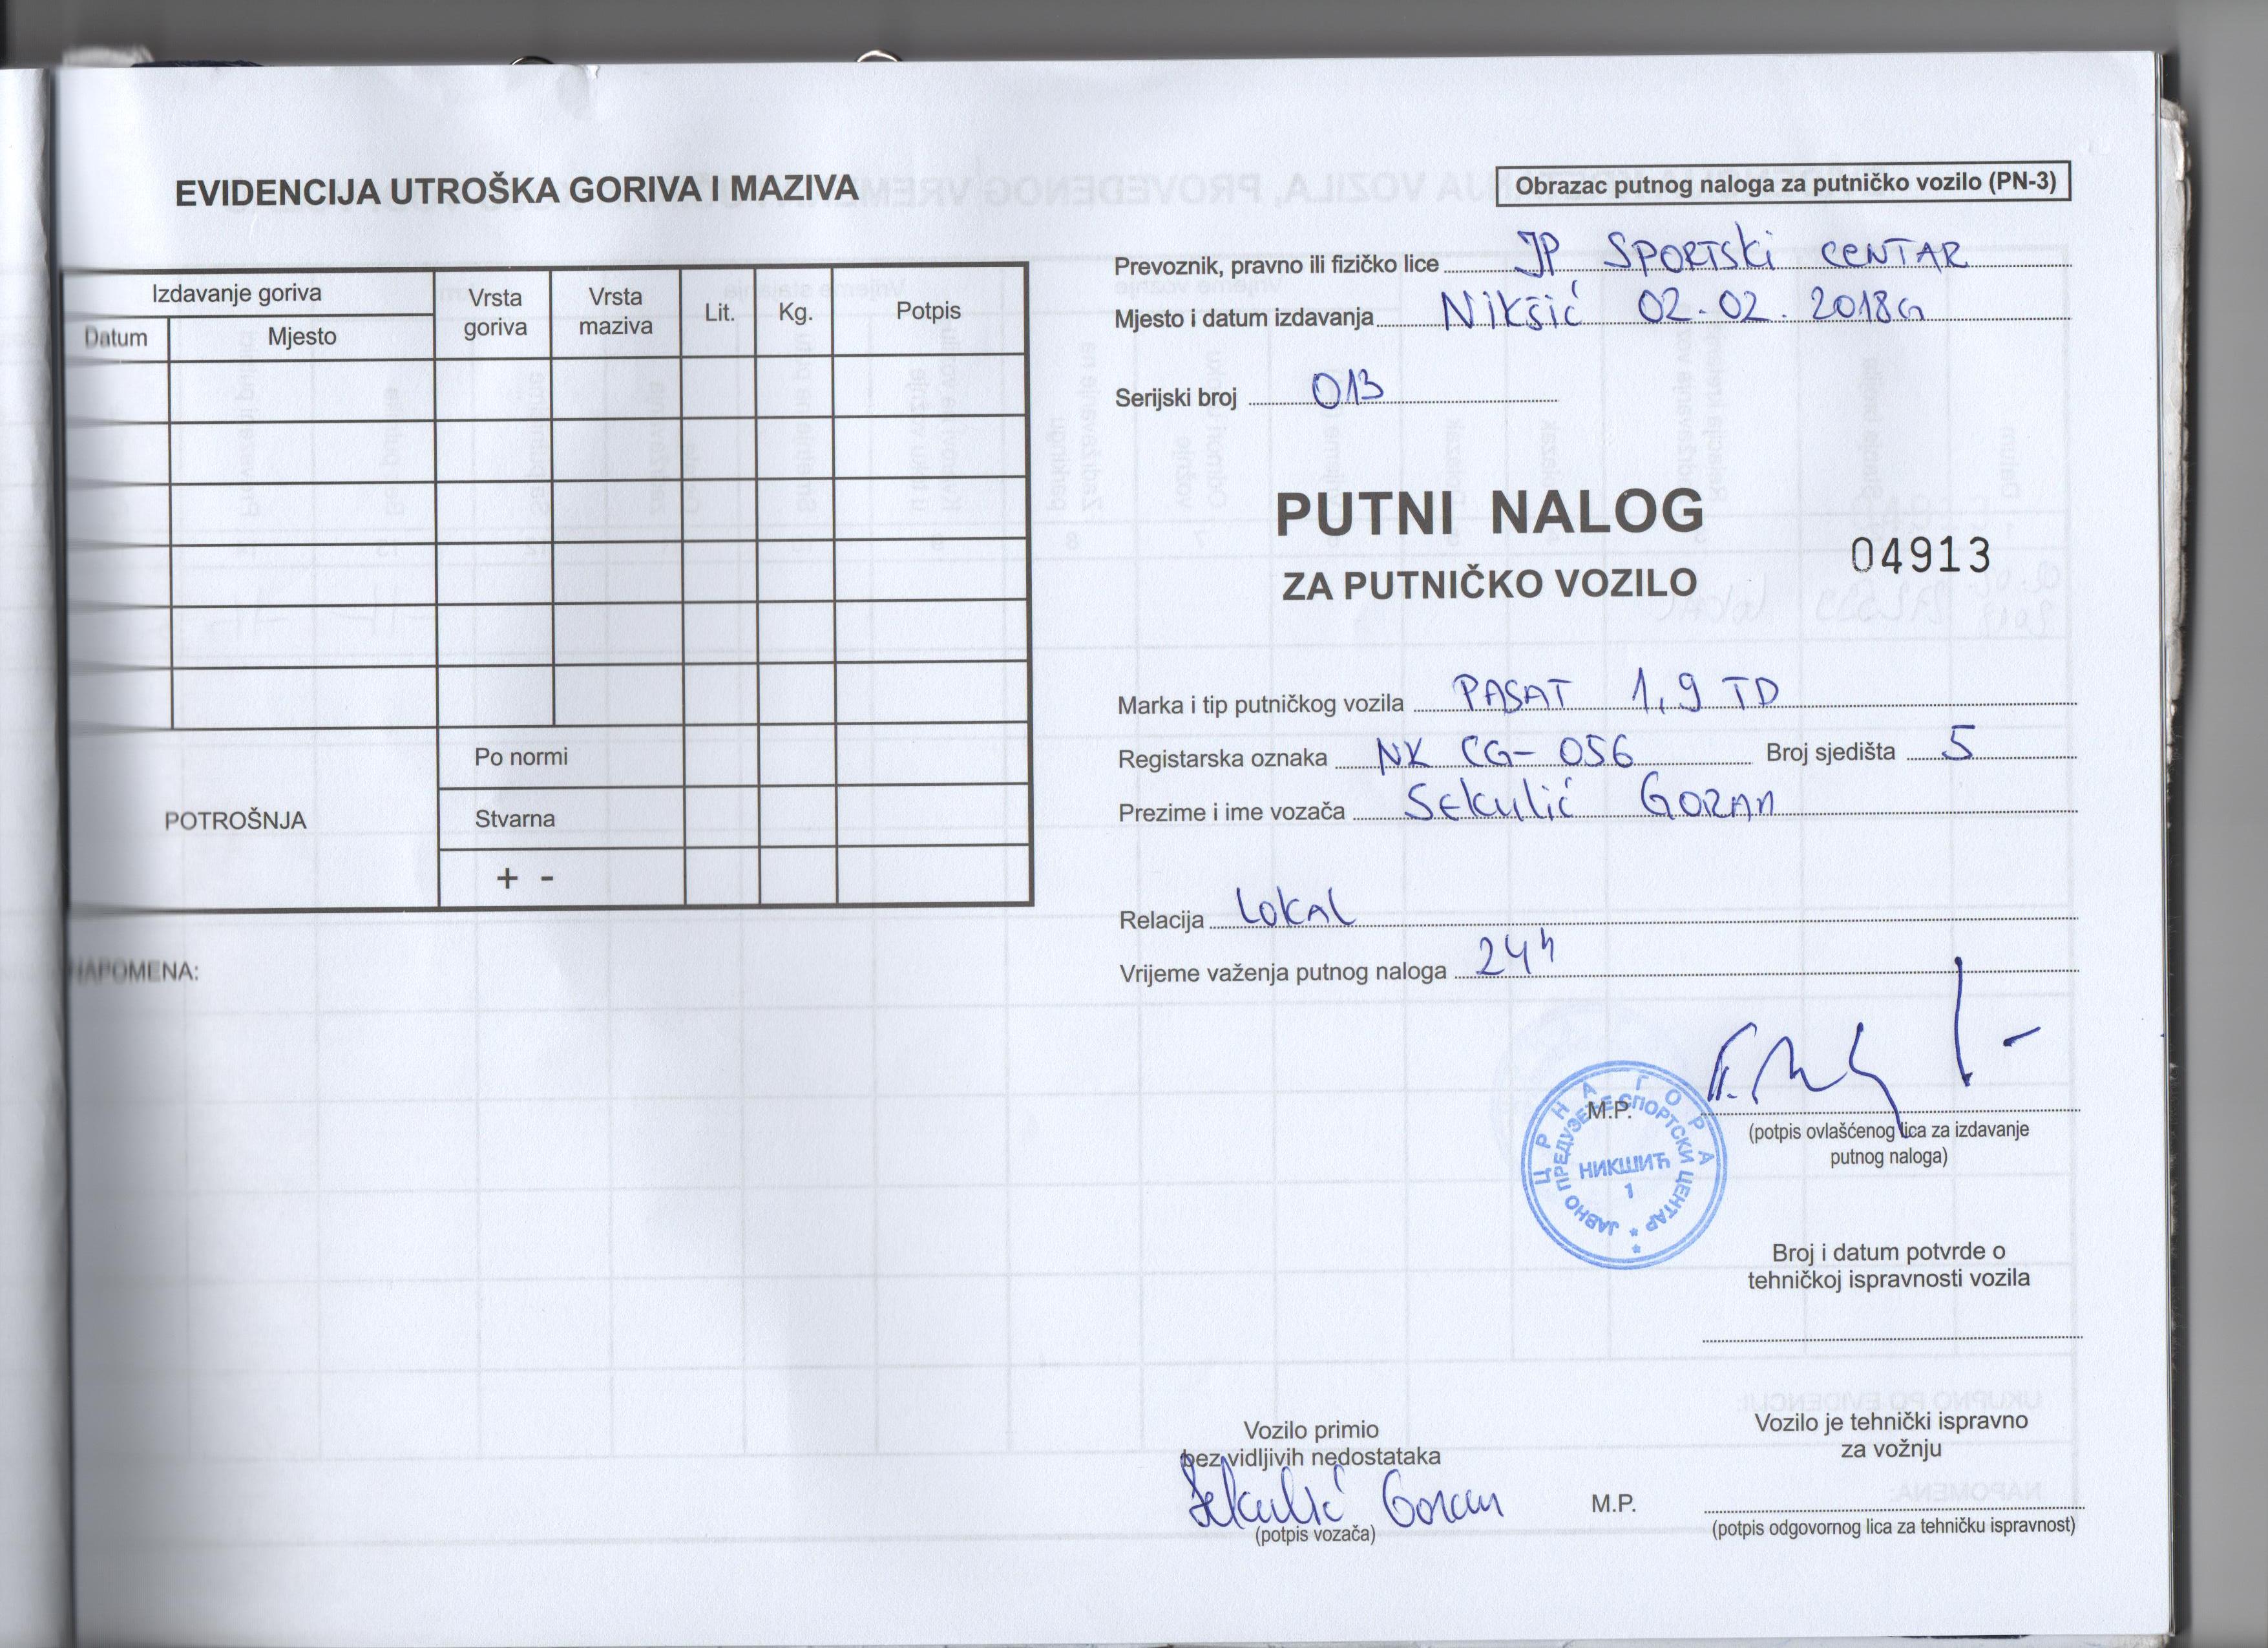 EVIDENCIJA UTROŠKA GORIVA I MAZIVA
Izdavanje goriva
Datum
Mjesto
Vrsta goriva
Vrsta maziva
Lit.
Kg.
Potpis
POTROŠNJA
Po normi
Stvarna
+ -
NAPOMENA:
Obrazac putnog naloga za putničko vozilo (PN-3)
Prevoznik, pravno ili fizičko lice JP SPORTSKI CENTAR
Mjesto i datum izdavanja Nikšić 02.02.2018G
Serijski broj 013
PUTNI NALOG
04913
ZA PUTNIČKO VOZILO
Marka i tip putničkog vozila PASAT 1,9 TD
Registarska oznaka NK CG-056 Broj sjedišta 5
Prezime i ime vozača Sekulić GORAN
Relacija LOKAL
Vrijeme važenja putnog naloga 24h
M.P.
(potpis ovlašćenog lica za izdavanje
putnog naloga)
ЦРНА ГОРА
ЈАВНО ПРЕДУЗЕЋЕ СПОРТСКИ ЦЕНТАР
НИКШИЋ
1
Broj i datum potvrde o
tehničkoj ispravnosti vozila
Vozilo primio
bez vidljivih nedostataka
Sekulić Goran
(potpis vozača)
Vozilo je tehnički ispravno
za vožnju
M.P.
(potpis odgovornog lica za tehničku ispravnost)